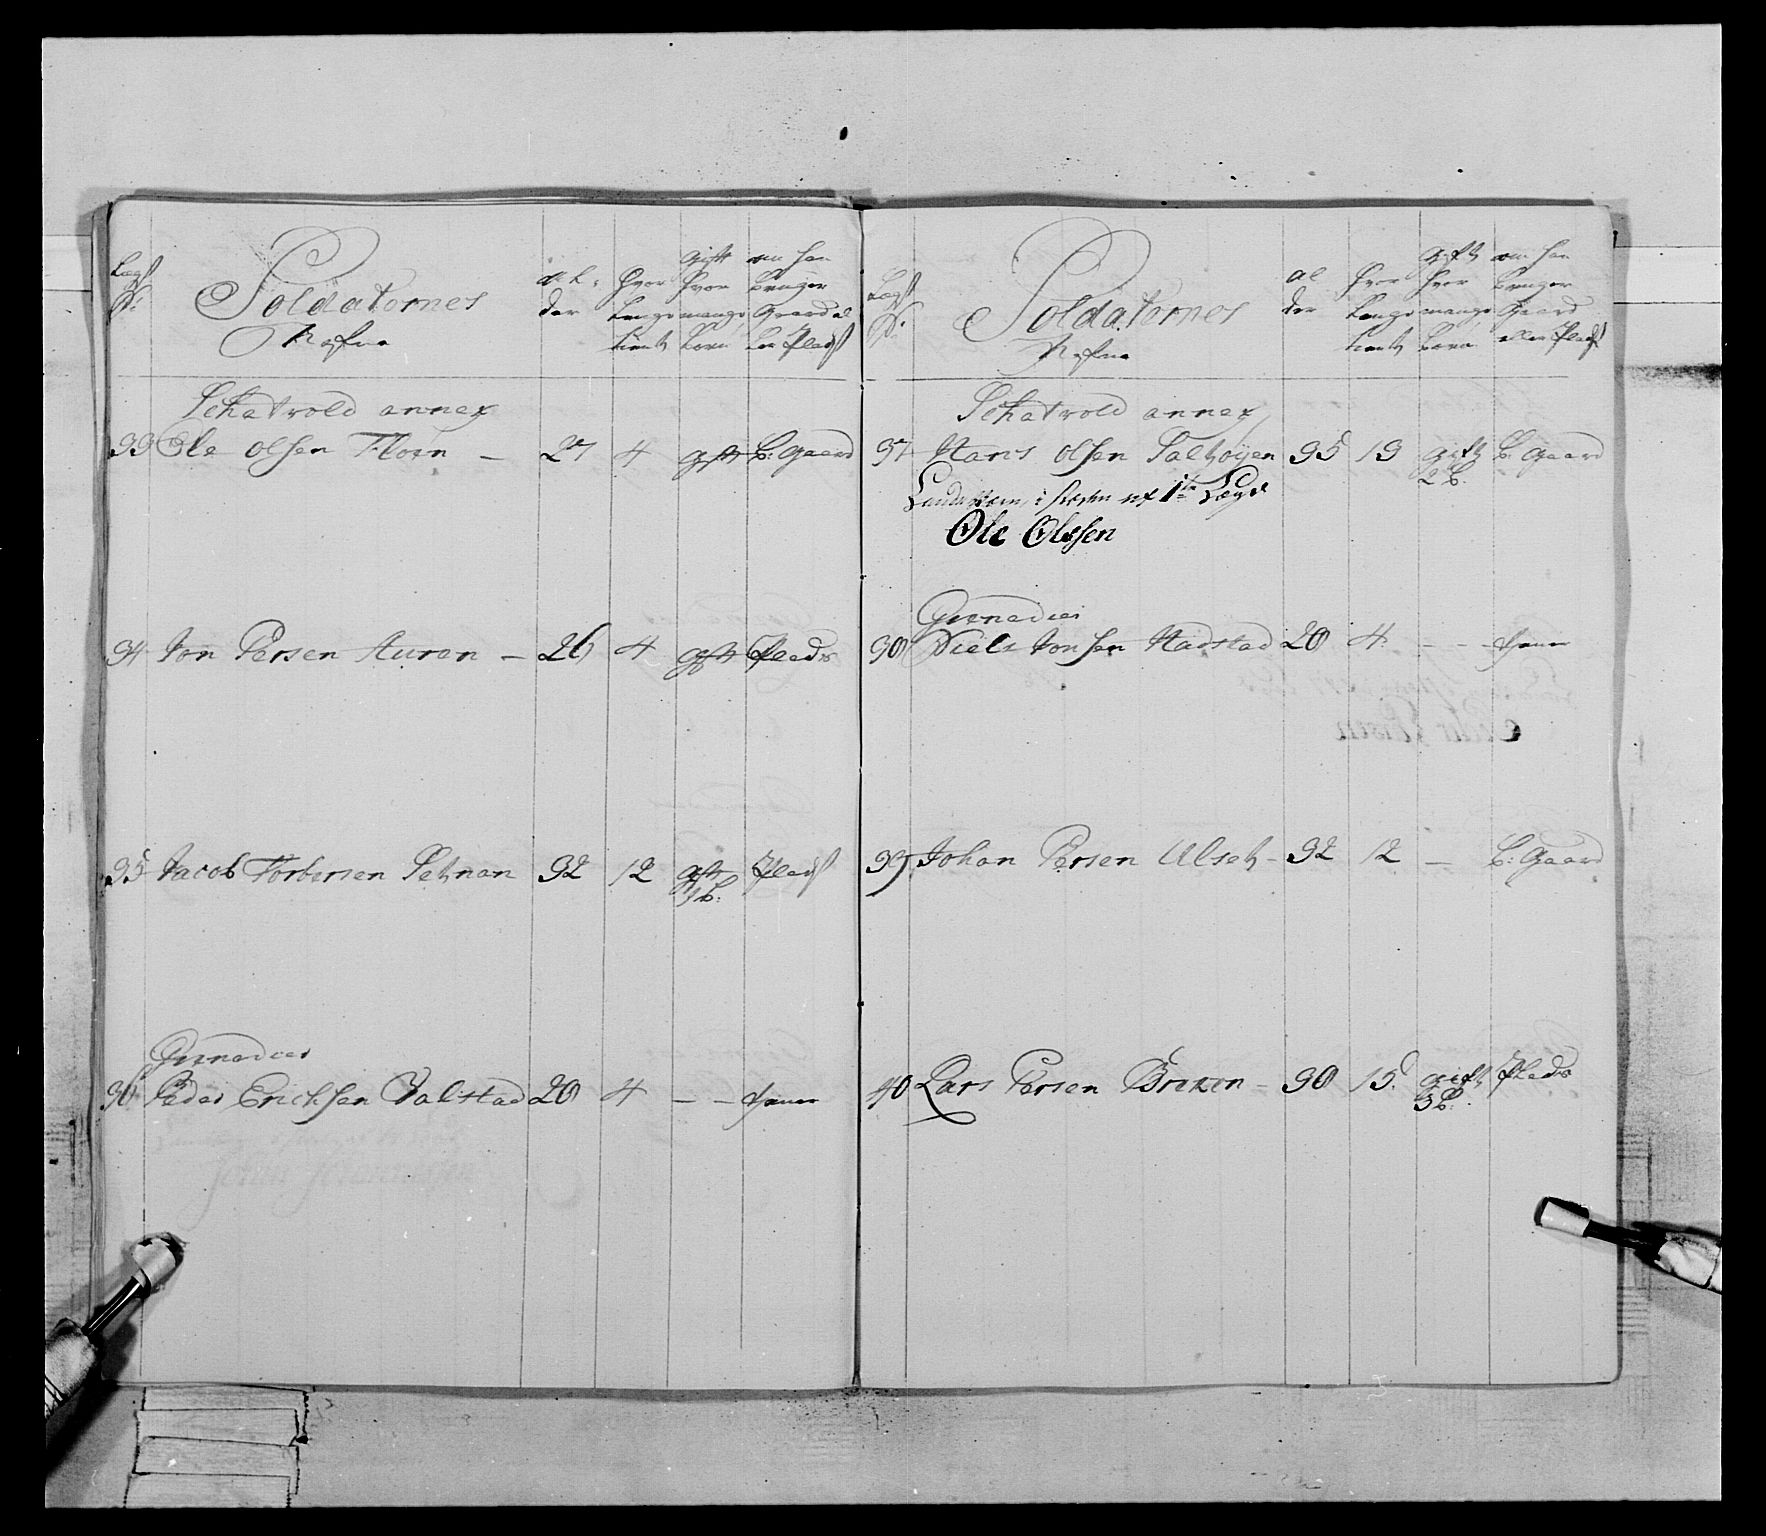 Lægs No:
Soldaternes Nafne
al- der
hvor Længe tient
gift hvor mange børn
om han bruger Gaard el ler Plads
Schatvold annex
33 Ole Olsen Floen - 27 4 gift b: Gaard
34 Jon Persen Auran - 26 4 gift Plads
35 Jacob Torbersen Setnan 32 12 gift Plads
3 b:
Grenadeer
36 Peder Erichsen Valstad 20 4 - - tiener
Lægs No.
Soldaternes Nafne
al der
hvor Længe tient
gift hvor mange børn
om han bruger Gaard eller Plads
Schatvold annex
37 Hans Olsen Salthøyen 35 13 gift b: Gaard
2 b.
i steden af 1te Lægd
Ole Olssen
Grenadeer
38 Niels Jonsen Haastad 20 4 - - - tiener
39 Johan Persen Ulset - 32 12 - b: Gaard
40 Lars Persen Brexen - 30 15 gift Plads
3 b: